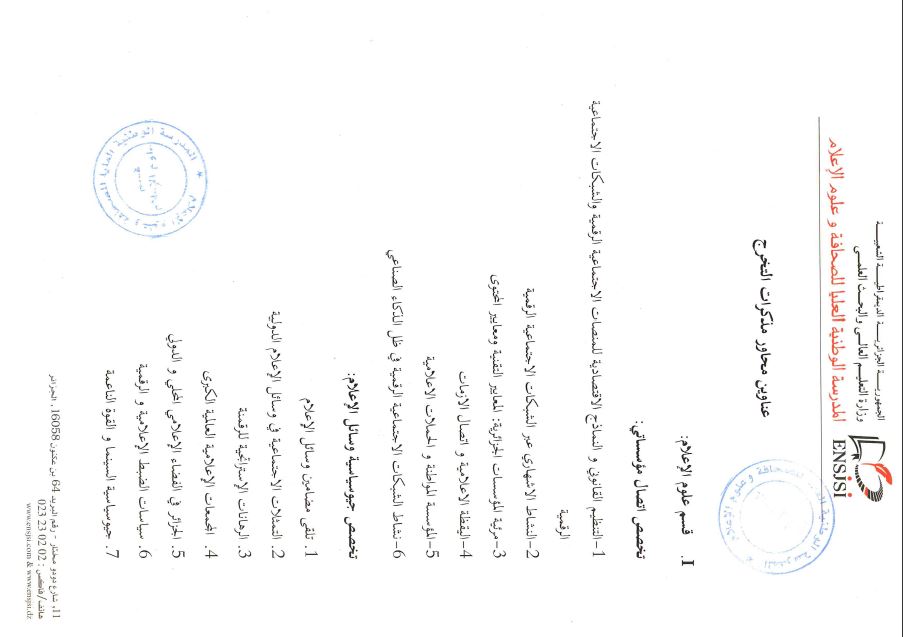 الجمهوريـــة الجزائريـــة الديمقراطيـــة الشعبيـــة
وزارة التعليـم العـالـي والبحـث العلمـي
المدرسة الوطنية العليا للصحافة و علوم الإعلام
ENSJSI
عناوين محاور مذكرات التخرج
I. قسم علوم الإعلام:
تخصص اتصال مؤسساتي:
1-التنظيم القانوني و النماذج الاقتصادية للمنصات الاجتماعية الرقمية والشبكات الاجتماعية
الرقمية
2-النشاط الاشهاري عبر الشبكات الاجتماعية الرقمية
3-مرئية المؤسسات الجزائرية: المعايير التقنية ومعايير المحتوى
4-اليقظة الاعلامية و اتصال الازمات
5-المؤسسة المواطنة و الحملات الاعلامية
6-نشاط الشبكات الاجتماعية الرقمية في ظل الذكاء الصناعي
تخصص جيوسياسية وسائل الإعلام:
1. تلقي مضامين وسائل الإعلام
2. التمثلات الاجتماعية في وسائل الإعلام الدولية
3. الرهانات الإستراتيجية للرقمنة
4. المجمعات الإعلامية العالمية الكبرى
5. الجزائر في الفضاء الإعلامي المحلي و الدولي
6. سياسات الضبط الإعلامية و الرقمية
7. جيوسياسية السينما و القوة الناعمة
11، شارع دودو مختار - رقم البريد 64 بن عكنون 16058، الجزائر
هاتف/فاكس : 02 02 23 023
www.ensjsi.com & www.ensjsi.dz